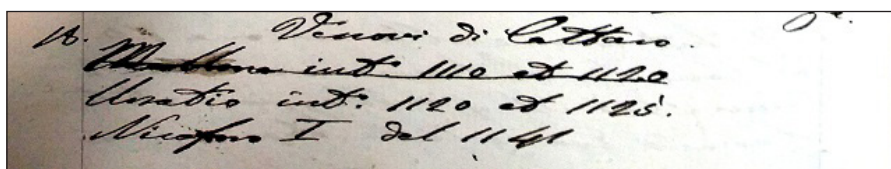 A. Vescovi di Cattaro.
int.º 1110 et 1120
Ursatio int.º 1120 et 1125.
Niceforo I del 1141